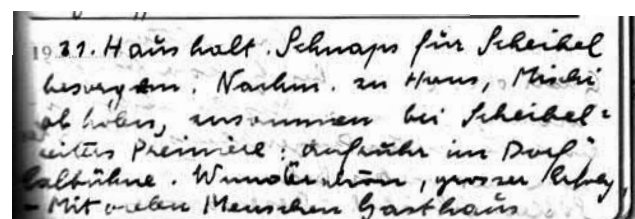 1931. Haushalt. Schnaps für Scheibel
besorgen. Nachm. zu Haus, Mischi
abholen, zusammen bei Scheibel-
eiters Premiere: Aufruhr im Dorf"
. Wunderschön, grosser Erfolg
- Mit vielen Menschen Gasthaus